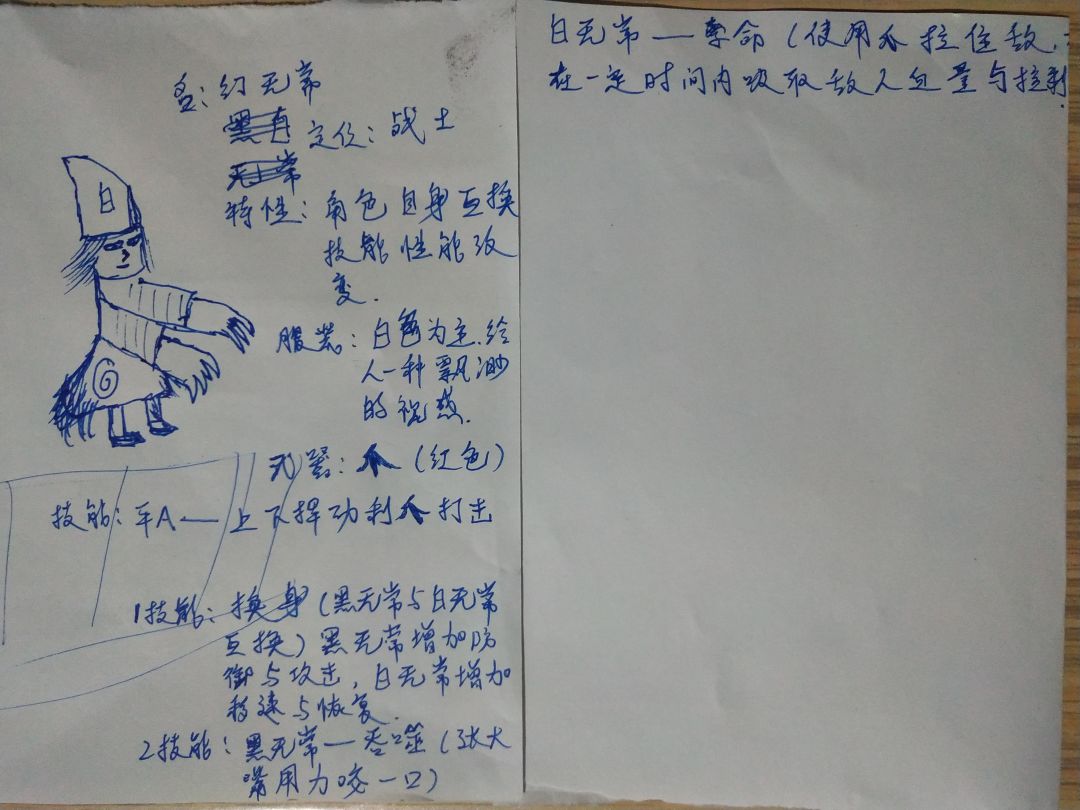 名：幻无常
定位：战士
特性：角色自身互换
技能性能改
变.
白
服装：白色为主.给
人一种飘渺
的视感.
武器：爪（红色）
技能：平A—上下挥动利爪打击
1技能：换身（黑无常与白无常
互换）黑无常增加防
御与攻击，白无常增加
移速与恢复.
2技能：黑无常—吞噬（张大
嘴用力咬一口）
白无常—牵命（使用爪拉住敌.
在一定时间内吸取敌人血量与控制